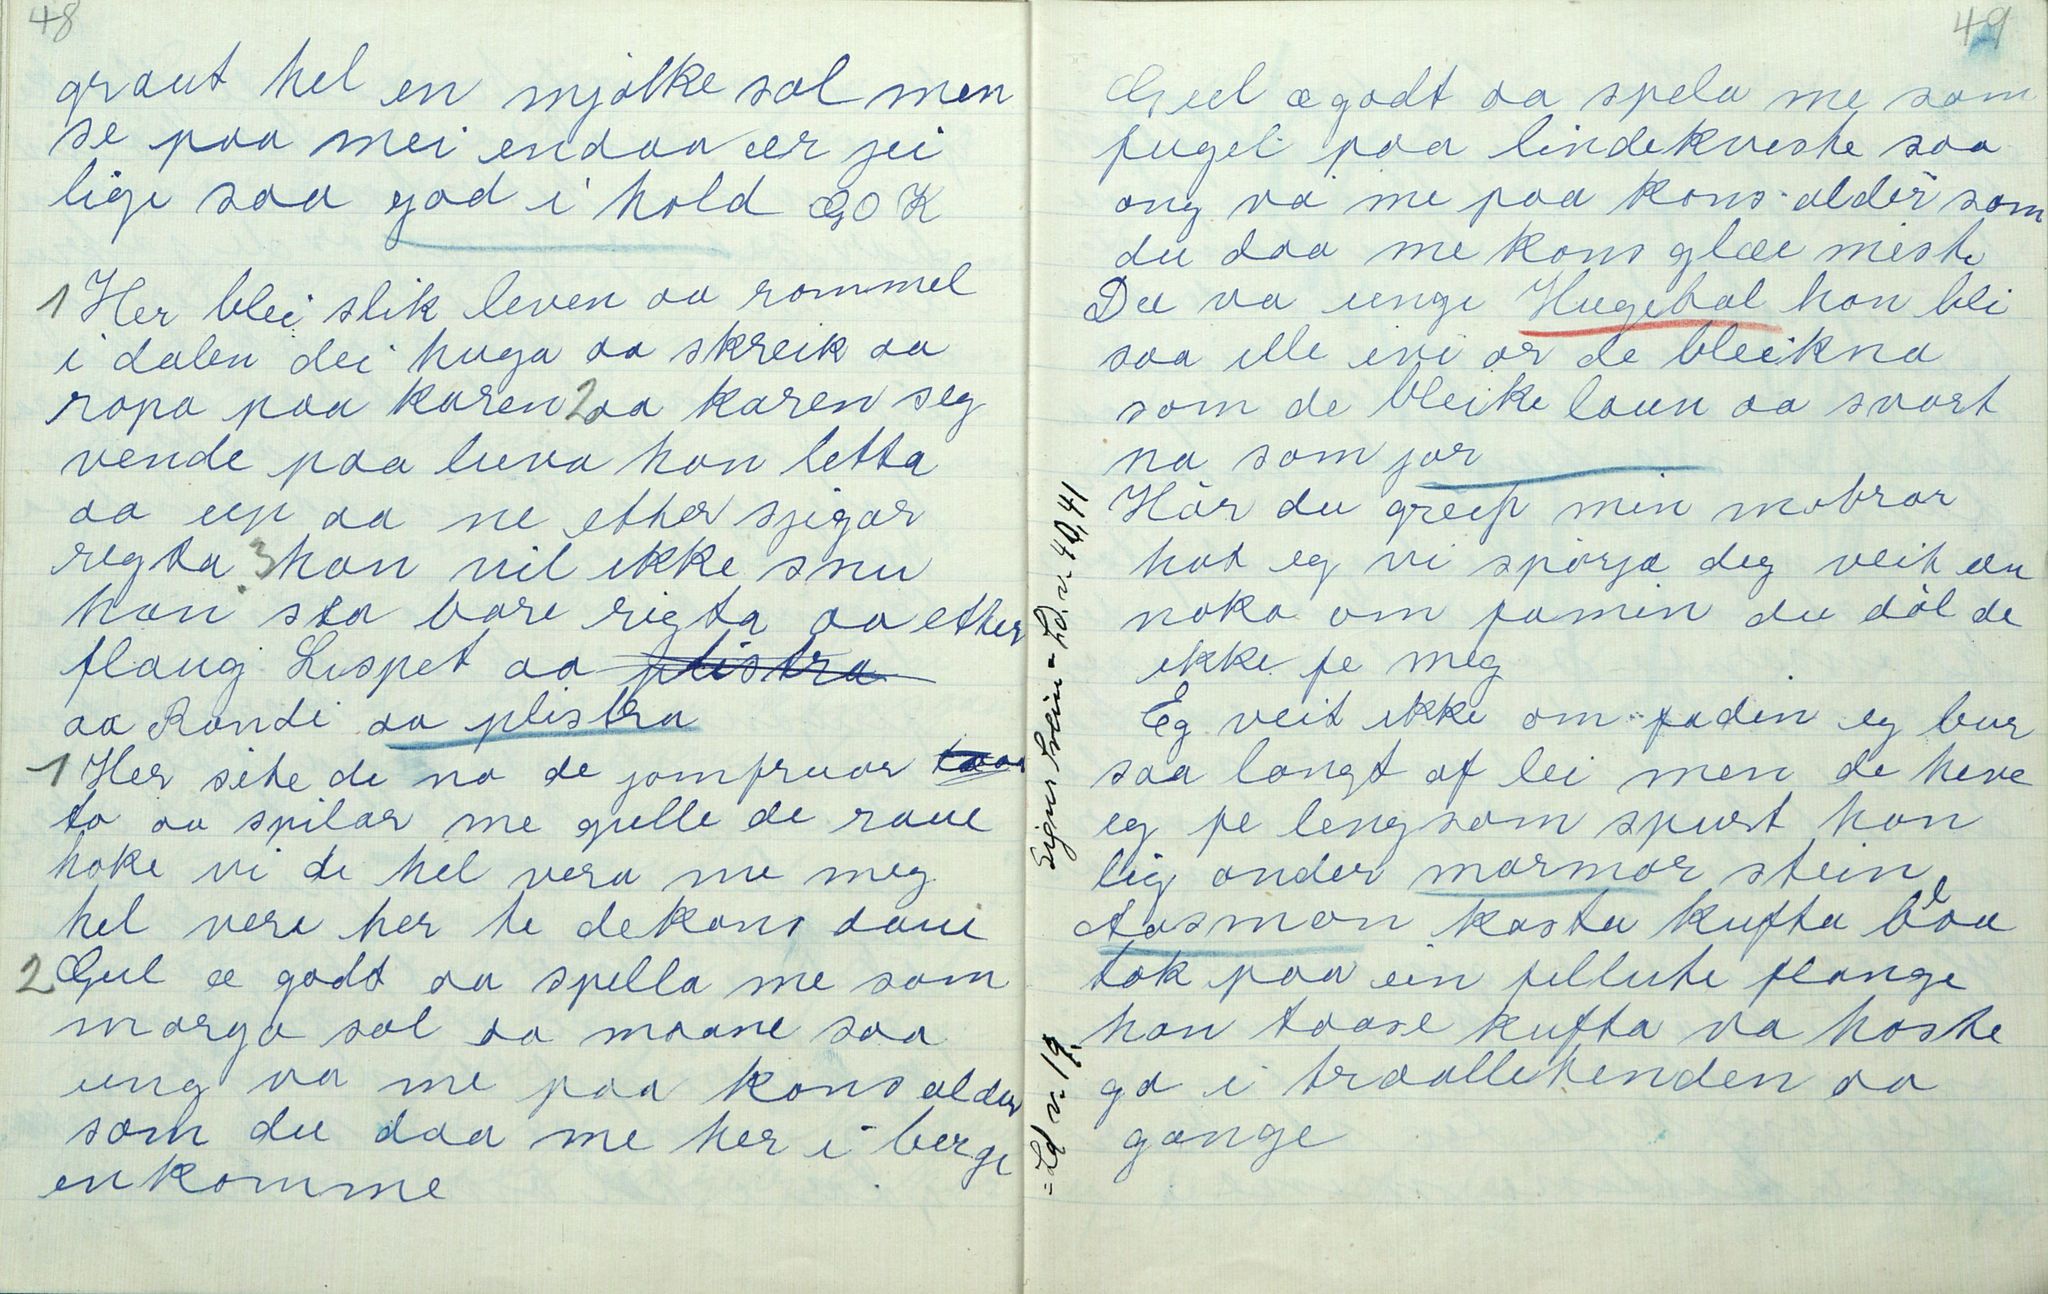 48
graut hel en mjølke sol men
se paa mei endaa er jei
lige saa god i hold OK
1 Her blei slik leven aa rommel
i dalen dei huga aa skreik aa
ropa paa karen 2 aa karen seg
vende paa luva han letta
aa up aa ne etter sjigar
regta 3 han vil ikke snu
han sta bare rigta aa etter
flaug Lispet aa plistra
aa Randi aa plistra
1 Her sete de na de jomfruar
to aa spilar me gulle de raue
hoke vi de hel vera me meg
hel vere her te dekans daue
2 Gul æ godt aa spella me som
margo sol aa maane saa
ung va me paa kons alder
som du daa me her i berge
enkomme
49
Geel æ godt aa spela me som
fugel paa lindekveste saa
ong va me paa kons alder som
du daa me kons glæe miste
De va unge Hugebal han bli
saa ille ivi ar de bleikna
som de bleike laun aa svart
na som jor
Hår du greip min mobrar
hot eg vi spørja deg veit du
noko om famin du døl de
ikke fe meg
Eg veit ikke om fadin eg bur
saa langt af lei men de heve
eg fe lengsom spurt han
lig onder marmor stein
Aasman kasta kufta blaa
tok paa ein fellute flange
han taase kufta va hoste
ga i traalletenden aa
gange
= Ld v. 40,41
= Ld v. 19.